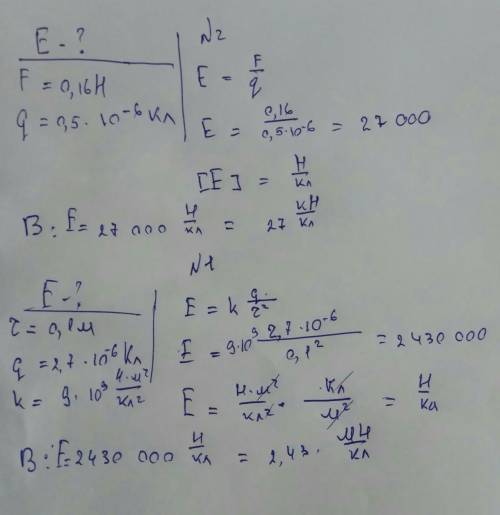 E - ?
F = 0,16 Н
q = 0,5 · 10⁻⁶ Кл
N2
E = F/q
E = 0,16/0,5·10⁻⁶ = 27 000
[E] = Н/Кл
В: E = 27 000 Н/Кл = 27 кН/Кл
N1
E - ?
r = 0,1 м
q = 2,7 · 10⁻⁶ Кл
k = 9 · 10⁹ Н·м²/Кл²
E = k q/r²
E = 9·10⁹ 2,7·10⁻⁶/0,1² = 2430 000
E = Н·м²/Кл² · ·Кл/м² = Н/Кл
В: E = 2430 000 Н/Кл = 2,43 · МН/Кл